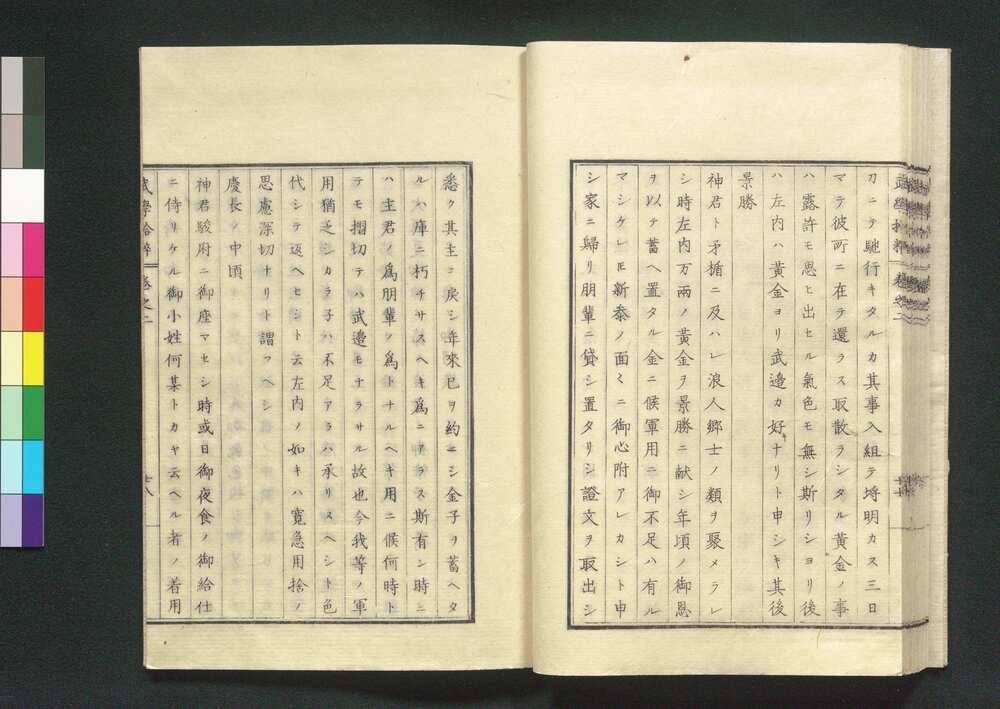 刀ニテ馳行キタルカ其事入組テ埒明カス三日
マテ彼町ニ在テ還ラス取散ラシタル黄金ノ事
ハ露許モ思ヒ出セル氣色モ無シ斯リシヨリ後
ハ左内ハ黄金ヨリ武邊カ好ナリト申シキ其後
景勝
神君ト矛楯ニ及ハレ浪人郷士ノ類ヲ聚メラレ
シ時左内万兩ノ黄金ヲ景勝ニ献シ年頃ノ御恩
ヲ以テ蓄ヘ置タル金ニ候軍用ニ御不足ハ有ル
マシケレ𪜈新叅ノ面〻ニ御心附アレカシト申
シ家ニ歸リ朋輩ニ貸シ置タリシ證文ヲ取出シ
悉ク其主ニ戾シ年來已ヲ約ニシ金子ヲ蓄ヘタ
ルハ庫ニ朽チサスヘキ爲ニアラス斯有ン時ニ
ハ主君ノ爲朋輩ノ爲トナルヘキ用ニ候何時ト
テモ摺切テハ武邊モナラサル故也今我等ノ軍
用猶乏シカラ子ハ不足アラハ承リスヘシト色
代シテ返ヘセシト云左内ノ如キハ寛急用捨ノ
思慮深切ナリト謂フヘシ
慶長ノ中頃
神君駿府ニ御座マセシ時或日御夜食ノ御給仕
ニ侍リケル御小姓何某トカヤ云ヘル者ノ着用
武學拾粹 卷之二